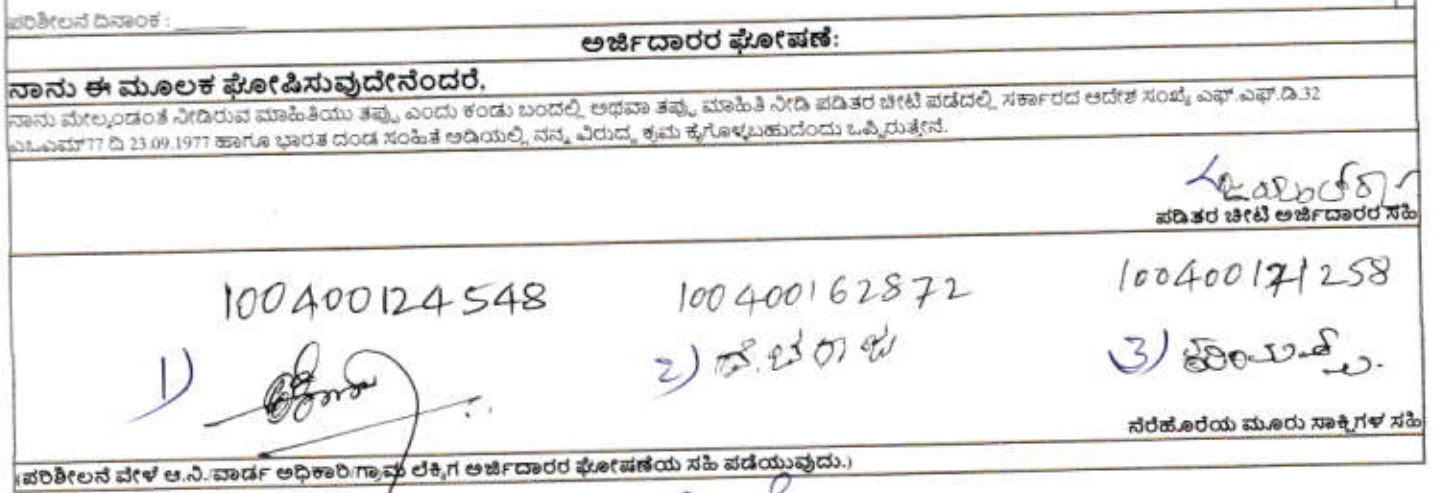 ಪರಿಶೀಲನೆ ದಿನಾಂಕ : ______
ಅರ್ಜಿದಾರರ ಘೋಷಣೆ:
ನಾನು ಈ ಮೂಲಕ ಘೋಷಿಸುವುದೇನೆಂದರೆ,
ನಾನು ಮೇಲ್ಕಂಡಂತೆ ನೀಡಿರುವ ಮಾಹಿತಿಯು ತಪ್ಪು ಎಂದು ಕಂಡು ಬಂದಲ್ಲಿ ಅಥವಾ ತಪ್ಪು ಮಾಹಿತಿ ನೀಡಿ ಪಡಿತರ ಚೀಟಿ ಪಡೆದಲ್ಲಿ ಸರ್ಕಾರದ ಆದೇಶ ಸಂಖ್ಯೆ ಎಫ್.ಎಫ್.ಡಿ.32
ಎಒಎಮ್77 ದಿ 23.09.1977 ಹಾಗೂ ಭಾರತ ದಂಡ ಸಂಹಿತೆ ಅಡಿಯಲ್ಲಿ ನನ್ನ ವಿರುದ್ಧ ಕ್ರಮ ಕೈಗೊಳ್ಳಬಹುದೆಂದು ಒಪ್ಪಿರುತ್ತೇನೆ.
ಪಡಿತರ ಚೀಟಿ ಅರ್ಜಿದಾರರ ಸಹಿ
100400124548 100400162872 100400171258
1) 2) 3)
ನೆರೆಹೊರೆಯ ಮೂರು ಸಾಕ್ಷಿಗಳ ಸಹಿ
(ಪರಿಶೀಲನೆ ವೇಳೆ ಆ.ನಿ./ವಾರ್ಡ್ ಅಧಿಕಾರಿ/ಗ್ರಾಮ ಲೆಕ್ಕಿಗ ಅರ್ಜಿದಾರರ ಘೋಷಣೆಯ ಸಹಿ ಪಡೆಯುವುದು.)